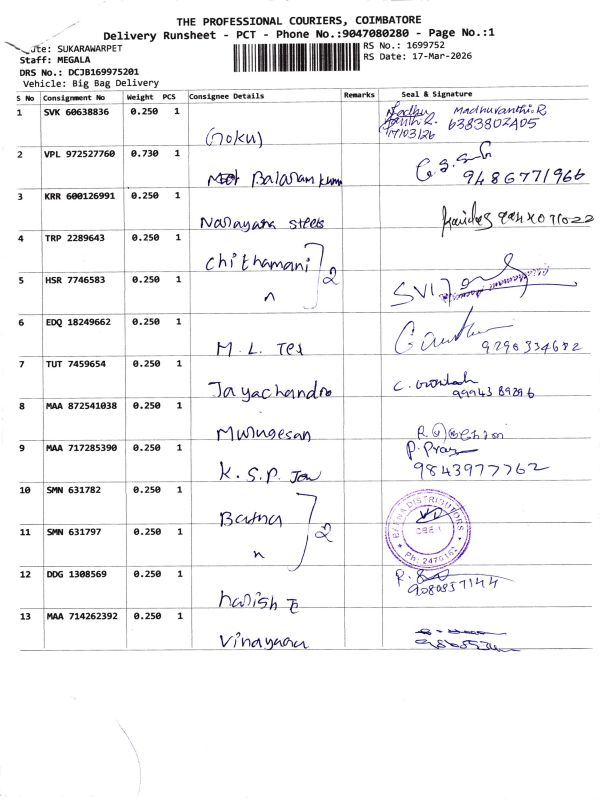 THE PROFESSIONAL COURIERS, COIMBATORE
Delivery Runsheet - PCT - Phone No.:9047080280 - Page No.:1
ute: SUKARAWARPET
RS No.: 1699752
Staff: MEGALA
RS Date: 17-Mar-2026
DRS No.: DCJB169975201
Vehicle: Big Bag Delivery
S No Consignment No Weight PCS Consignee Details Remarks Seal & Signature
1 SVK 60638836 0.250 1 Goku Madhuvanthi.R
17/03/26 6383802405
2 VPL 972527760 0.730 1 Balaram kum 9486771966
3 KRR 600126991 0.250 1 Narayana steels
4 TRP 2289643 0.250 1 Chithamani 2
5 HSR 7746583 0.250 1 "
6 EDQ 18249662 0.250 1 M.L. Tex
7 TUT 7459654 0.250 1 Jayachandra
8 MAA 872541038 0.250 1 Murugesan
9 MAA 717285390 0.250 1 K.S.P. 9843977762
10 SMN 631782 0.250 1 Beena 2 BEENA DISTRIBUTORS
CBE-1
Ph: 2470162
11 SMN 631797 0.250 1 "
12 DDG 1308569 0.250 1 harish E 9080857144
13 MAA 714262392 0.250 1 Vinayaga